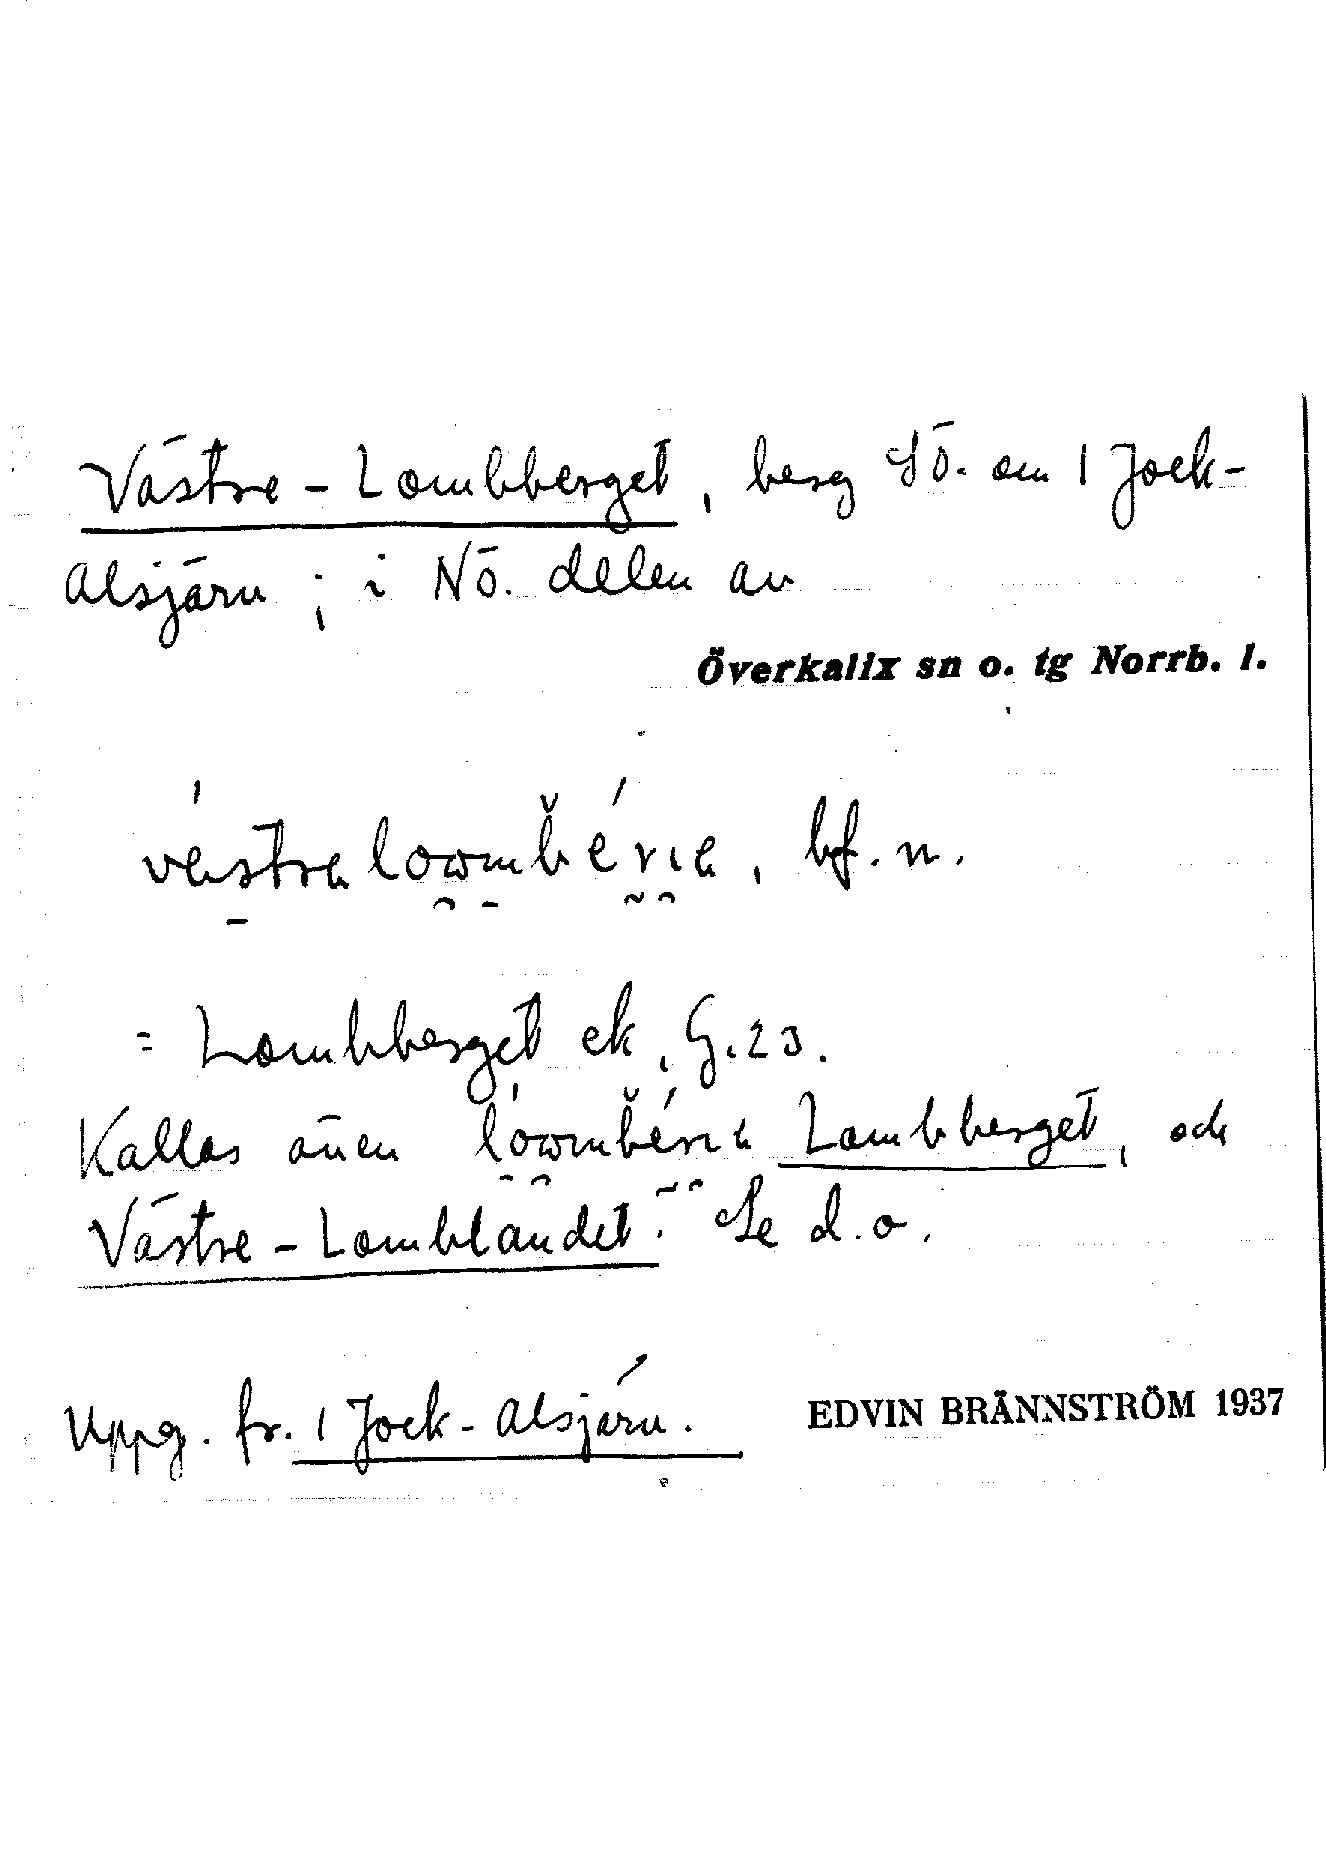 Västre-Lombberget, berg SÖ. om 1 Jock-
alsjärv; i NÖ. delen av
Överkalix sn o. tg Norrb. l.
bf. n.
= Lombberget ek, G.23.
Kallas även Lombberget, och
Västre-Lomblandet. Se d.o.
Uppg. fr. 1 Jock-alsjärv. EDVIN BRÄNNSTRÖM 1937